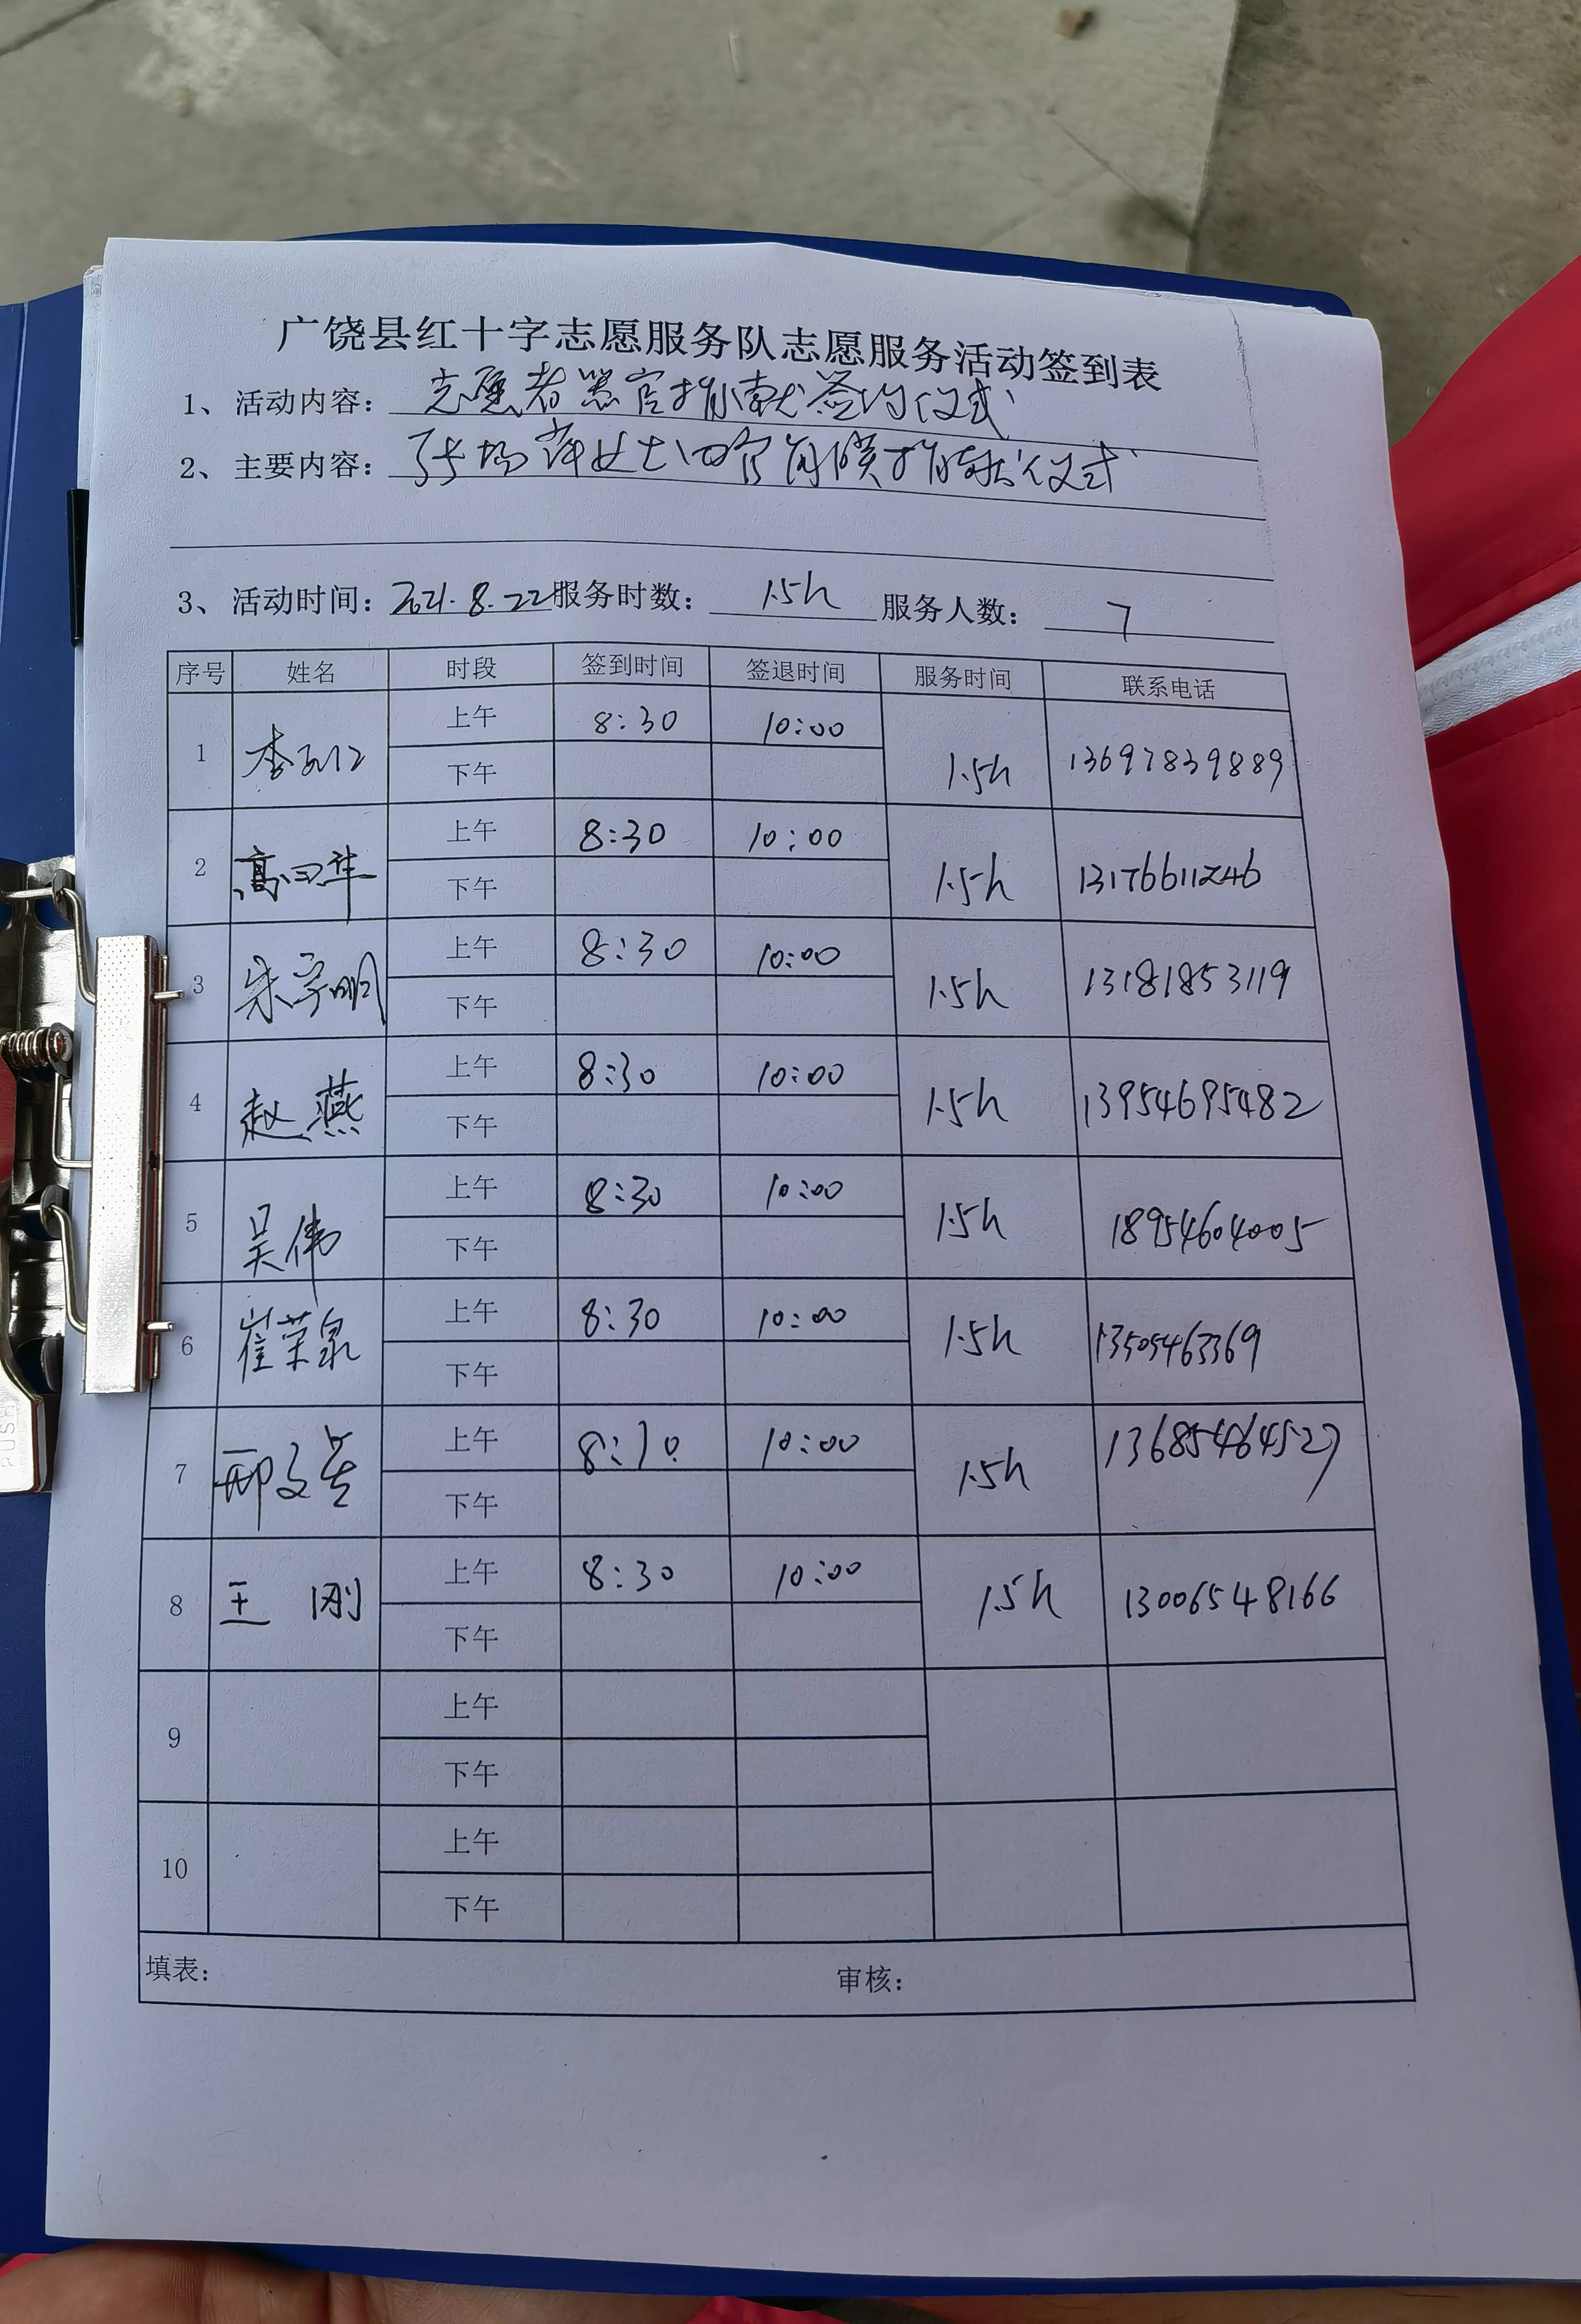 广饶县红十字志愿服务队志愿服务活动签到表
1、活动内容：志愿者器官捐献签约仪式
2、主要内容：张 萍女士 捐献仪式
3、活动时间：2021.8.22 服务时数：1.5h 服务人数：7
序号 姓名 时段 签到时间 签退时间 服务时间 联系电话
1 李 上午 8:30 10:00 1.5h 13697839889
下午
2 高 华 上午 8:30 10:00 1.5h 13176611246
下午
3 朱宇明 上午 8:30 10:00 1.5h 13181853119
下午
4 赵燕 上午 8:30 10:00 1.5h 13954695482
下午
5 吴伟 上午 8:30 10:00 1.5h 18954604005
下午
6 崔荣泉 上午 8:30 10:00 1.5h 13505463369
下午
7 邢文 上午 8:30 10:00 1.5h 13685464527
下午
8 王刚 上午 8:30 10:00 1.5h 13006548166
下午
9 上午
下午
10 上午
下午
填表： 审核：
PUSH